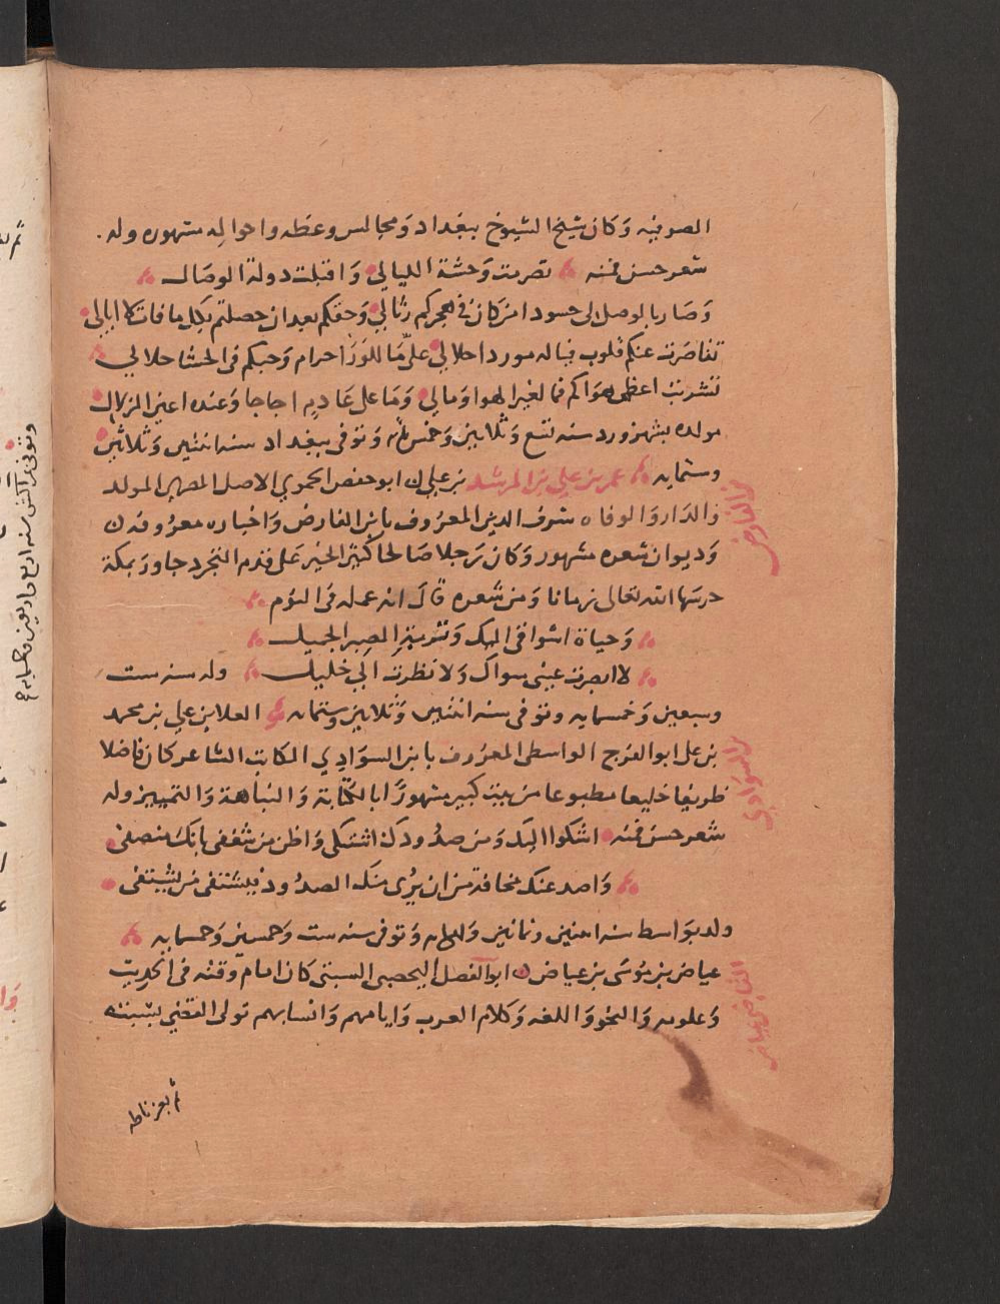 الصوفيه وكان شيخ الشيوخ ببغداد ومجالس وعظه واحواله مشهوره وله
شعر حسن فمنه تصرمت وحشة الليالي واقبلت دولة الوصال
وصار بالوصل لي حسودا من كان في هجركم رثالي وحقكم بعد ان حصلتم بكل ما فات لا ابالي
تقاصرت عنكم قلوب فياله موردا حلالي علي ما للورا حرام وحبكم في الحشا حلالي
تشربت اعظمي هواكم فما لغير الهوا ومالي وما علي عادم اجاجا وعنده اعين الزلال
مولده بشهزورد سنه تسع وثلاثين وخمس مايه وتوفي ببغداد سنه اثنتين وثلاثين
وستمايه عمر بن علي بن المرشد بن علي ابو حفص الحموي الاصل المصري المولد
والدار والوفاه شرف الدين المعروف بابن الفارض واخباره معروفه
وديوان شعره مشهور وكان رجلا صالحا كثير الخير علي قدم التجرد جاور بمكة
حرسها الله تعالي زمانا ومن شعره قال انه عمله في النوم
وحياة اشواقي اليك وتربة الصبر الجميل
لا ابصرت عيني سواك ولا نظرت الي خليل وله سنه ست
وسبعين وخمسمايه وتوفي سنه اثنتين وثلاثين وستمايه العلا بن علي بن محمد
بن علي ابو الفرج الواسطي المعروف بابن السوادي الكاتب الشاعر كان فاضلا
ظريفا خليعا مطبوعا من بيت كبير مشهور بالكتابة والنباهة والتمييز وله
شعر حسن فمنه اشكوا اليك ومن صدودك اشتكي واظن من شغفي بانك منصفي
واصد عنك مخافة من ان يري منك الصدود فيشتفي من يشتفي
ولد بواسط سنه اثنتين وثمانين واربعمايه وتوفي سنه ست وخمسين وخمسمايه
عياض بن موسي بن عياض ابو الفضل اليحصبي السبتي كان امام وقته في الحديث
وعلومه والنحو واللغه وكلام العرب وايامهم وانسابهم تولي القضي بسبته
ثم بغرناطه
بن الفارض
بن السوادي
القاضي عياض
وتوفي بمراكش سنه اربع واربعين وخمسمايه